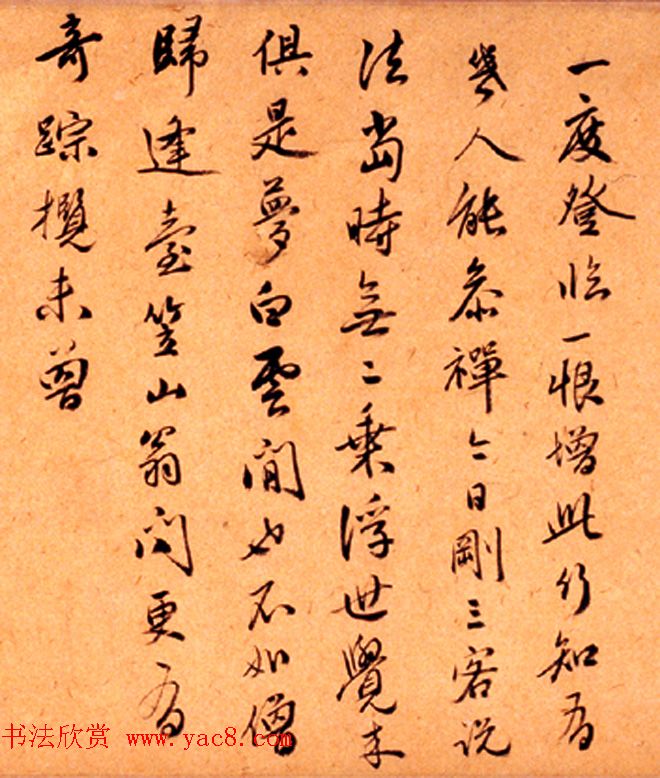 一度登臨一恨增此行知有
幾人能參禪今日剛三客説
法當時無二乘浮世覺来
俱是夢白雲閒也不如僧
歸逢臺笠山翁问更有
奇踪攬未曾
书法欣赏 www.yac8.com